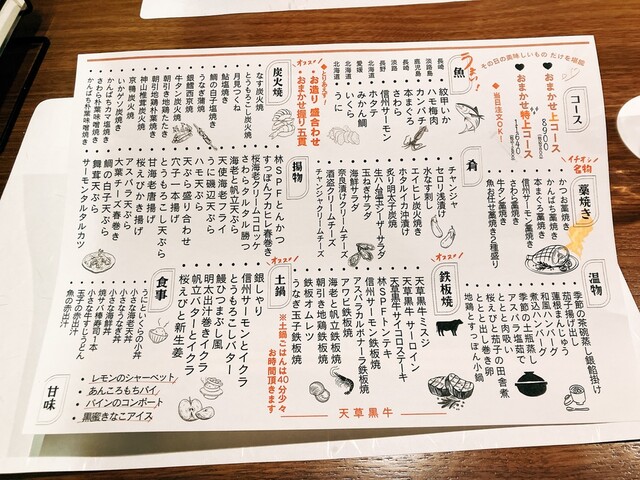 その日の美味しいもの だけを堪能
コース
❤おまかせ上コース
8900
❤おまかせ特上コース
◆当日注文OK!
うまい!
魚
長崎 紋甲いか
淡路島 ハモ梅肉
鹿児島 カンパチ
長崎 本まぐろ
淡路島 さわら
長野 信州サーモン
北海道 ホタテ
愛媛 みかん鯛
北海道 いくら
北海道 うに
オススメ!
◆とりあえず!
お造り 盛合わせ
おまかせ握り五貫
炭火焼
なす炭火焼
とうもろこし炭火焼
月見つくね
鮎塩焼き
鯛の白子塩焼き
うなぎ蒲焼
銀鱈西京焼
牛タン炭火焼
朝引き地鶏たたき
朝引き地鶏朴葉焼き
神山椎茸炭火焼
京鴨炭火焼
いかゲソ炭火焼
さわら朴葉味噌焼き
かんぱちカマ塩焼き
かんぱち朴葉味噌焼き
イチオシ名物
藁焼き
かつお藁焼き
かんぱち藁焼き
本まぐろ藁焼き
信州サーモン藁焼き
さわら藁焼き
牛タン藁焼き
魚お任せ藁焼き3種盛り
肴
チャンジャ
セロリ浅漬け
水なす刺し
エイヒレ炭火焼き
ホタルイカ沖漬け
炙り明太子炭焼
生八ム温玉シーザーサラダ
玉ねぎサラダ
海鮮サラダ
奈良漬けクリームチーズ
酒盗クリームチーズ
チャンジャクリームチーズ
オススメ!
揚物
林SPFとんかつ
すっぽんフカヒレ春巻き
桜海老クリームコロッケ
さわらタルタル勝つ
海老と帆立天ぷら
天使海老フライ
うに磯辺天ぷら
ハモ天ぷら
天ぷら盛り合わせ
穴子一本揚げ
とうもろこし天ぷら
甘海老唐揚げ
桜えびかき揚げ
アスパラ天ぷら
大葉チーズ春巻き
鯛の白子天ぷら
舞茸天ぷら
サーモンタルタルカツ
温物
季節の茶碗蒸し銀餡掛け
茄子揚げ出し
蓮根まんじゅう
和風ハンバーグ
煮込ハンバーグ
季節の土瓶蒸し
アスパラ塩茹で
とり肉吸い
桜えびと茄子の田舎煮
うととと出し巻き卵
地鶏とすっぽん小鍋
鉄板焼
天草黒牛ミスジ
天草黒牛 サーロイン
天草黒牛サイコロステーキ
林SPFトンテキ
信州サーモン鉄板焼
アスパラカルボナーラ鉄板焼
アワビ鉄板焼
海老と帆立鉄板焼
朝引き地鶏鉄板焼
鉄板オムレツ
うなぎ玉子鉄板焼
天草黒牛
オススメ!
土鍋
※土鍋ごはんは40分少々
お時間頂きます
銀しゃり
信州サーモンとイクラ
とうもろこしバター
鰻ひつまぶし風
明太出汁巻きイクラ
帆立バターとイクラ
桜えびと新生姜
食事
うにといくらの小丼
小さな海老天丼
小さなうなぎ丼
小さな海鮮丼
焼サバ棒寿司1本
小さな牛すじうどん
玉子の赤出汁
魚の赤出汁
甘味
レモンのシャーベット
あんころもちパイ
パインのコンポート
黒蜜きなこアイス